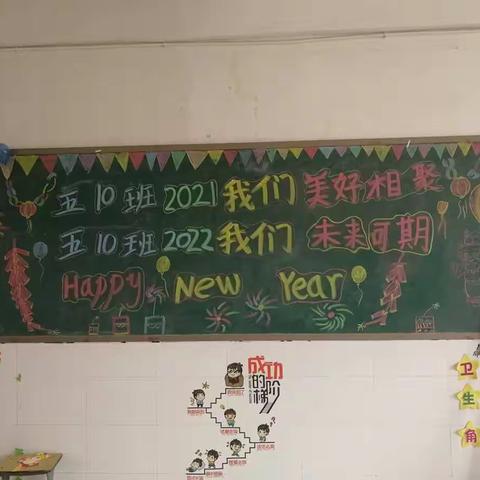 五10班2021我们美好相聚
五10班2022我们未来可期
Happy New Year
成功
的阶
梯
卫
生
角